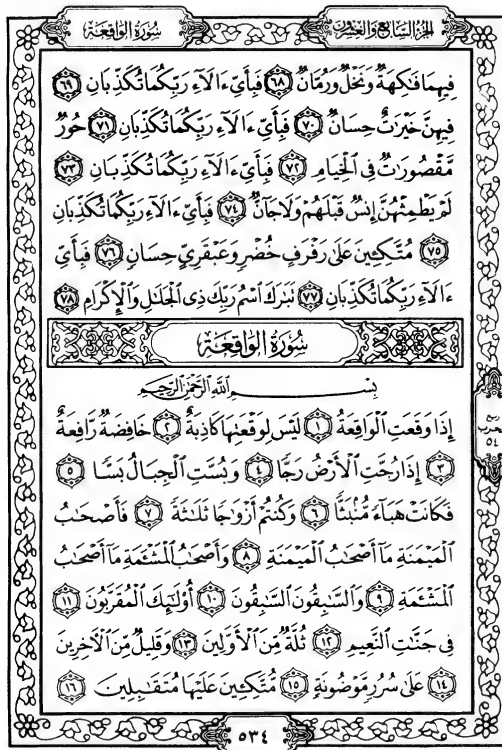 سُورَةُ الوَاقِعَة
الجُزْءُ السَّابِعُ وَالعِشْرُونَ
فِيهِمَا فَٰكِهَةٌ وَنَخْلٌ وَرُمَّانٌ ٦٨ فَبِأَيِّ ءَالَآءِ رَبِّكُمَا تُكَذِّبَانِ ٦٩
فِيهِنَّ خَيْرَٰتٌ حِسَانٌ ٧٠ فَبِأَيِّ ءَالَآءِ رَبِّكُمَا تُكَذِّبَانِ ٧١ حُورٌ
مَّقْصُورَٰتٌ فِى الْخِيَامِ ٧٢ فَبِأَيِّ ءَالَآءِ رَبِّكُمَا تُكَذِّبَانِ ٧٣
لَمْ يَطْمِثْهُنَّ إِنسٌ قَبْلَهُمْ وَلَا جَآنٌّ ٧٤ فَبِأَيِّ ءَالَآءِ رَبِّكُمَا تُكَذِّبَانِ
٧٥ مُتَّكِـِٔينَ عَلَىٰ رَفْرَفٍ خُضْرٍ وَعَبْقَرِىٍّ حِسَانٍ ٧٦ فَبِأَيِّ
ءَالَآءِ رَبِّكُمَا تُكَذِّبَانِ ٧٧ تَبَٰرَكَ ٱسْمُ رَبِّكَ ذِى ٱلْجَلَٰلِ وَٱلْإِكْرَامِ ٧٨
سُورَةُ الوَاقِعَة
بِسْمِ اللَّهِ الرَّحْمَٰنِ الرَّحِيمِ
إِذَا وَقَعَتِ ٱلْوَاقِعَةُ ١ لَيْسَ لِوَقْعَتِهَا كَاذِبَةٌ ٢ خَافِضَةٌ رَّافِعَةٌ
٣ إِذَا رُجَّتِ ٱلْأَرْضُ رَجًّا ٤ وَبُسَّتِ ٱلْجِبَالُ بَسًّا ٥
فَكَانَتْ هَبَآءً مُّنۢبَثًّا ٦ وَكُنتُمْ أَزْوَٰجًا ثَلَٰثَةً ٧ فَأَصْحَٰبُ
ٱلْمَيْمَنَةِ مَآ أَصْحَٰبُ ٱلْمَيْمَنَةِ ٨ وَأَصْحَٰبُ ٱلْمَشْـَٔمَةِ مَآ أَصْحَٰبُ
ٱلْمَشْـَٔمَةِ ٩ وَٱلسَّٰبِقُونَ ٱلسَّٰبِقُونَ ١٠ أُو۟لَٰٓئِكَ ٱلْمُقَرَّبُونَ ١١
فِى جَنَّٰتِ ٱلنَّعِيمِ ١٢ ثُلَّةٌ مِّنَ ٱلْأَوَّلِينَ ١٣ وَقَلِيلٌ مِّنَ ٱلْءَاخِرِينَ
١٤ عَلَىٰ سُرُرٍ مَّوْضُونَةٍ ١٥ مُّتَّكِـِٔينَ عَلَيْهَا مُتَقَٰبِلِينَ ١٦
حزب
٥٤
٥٣٤